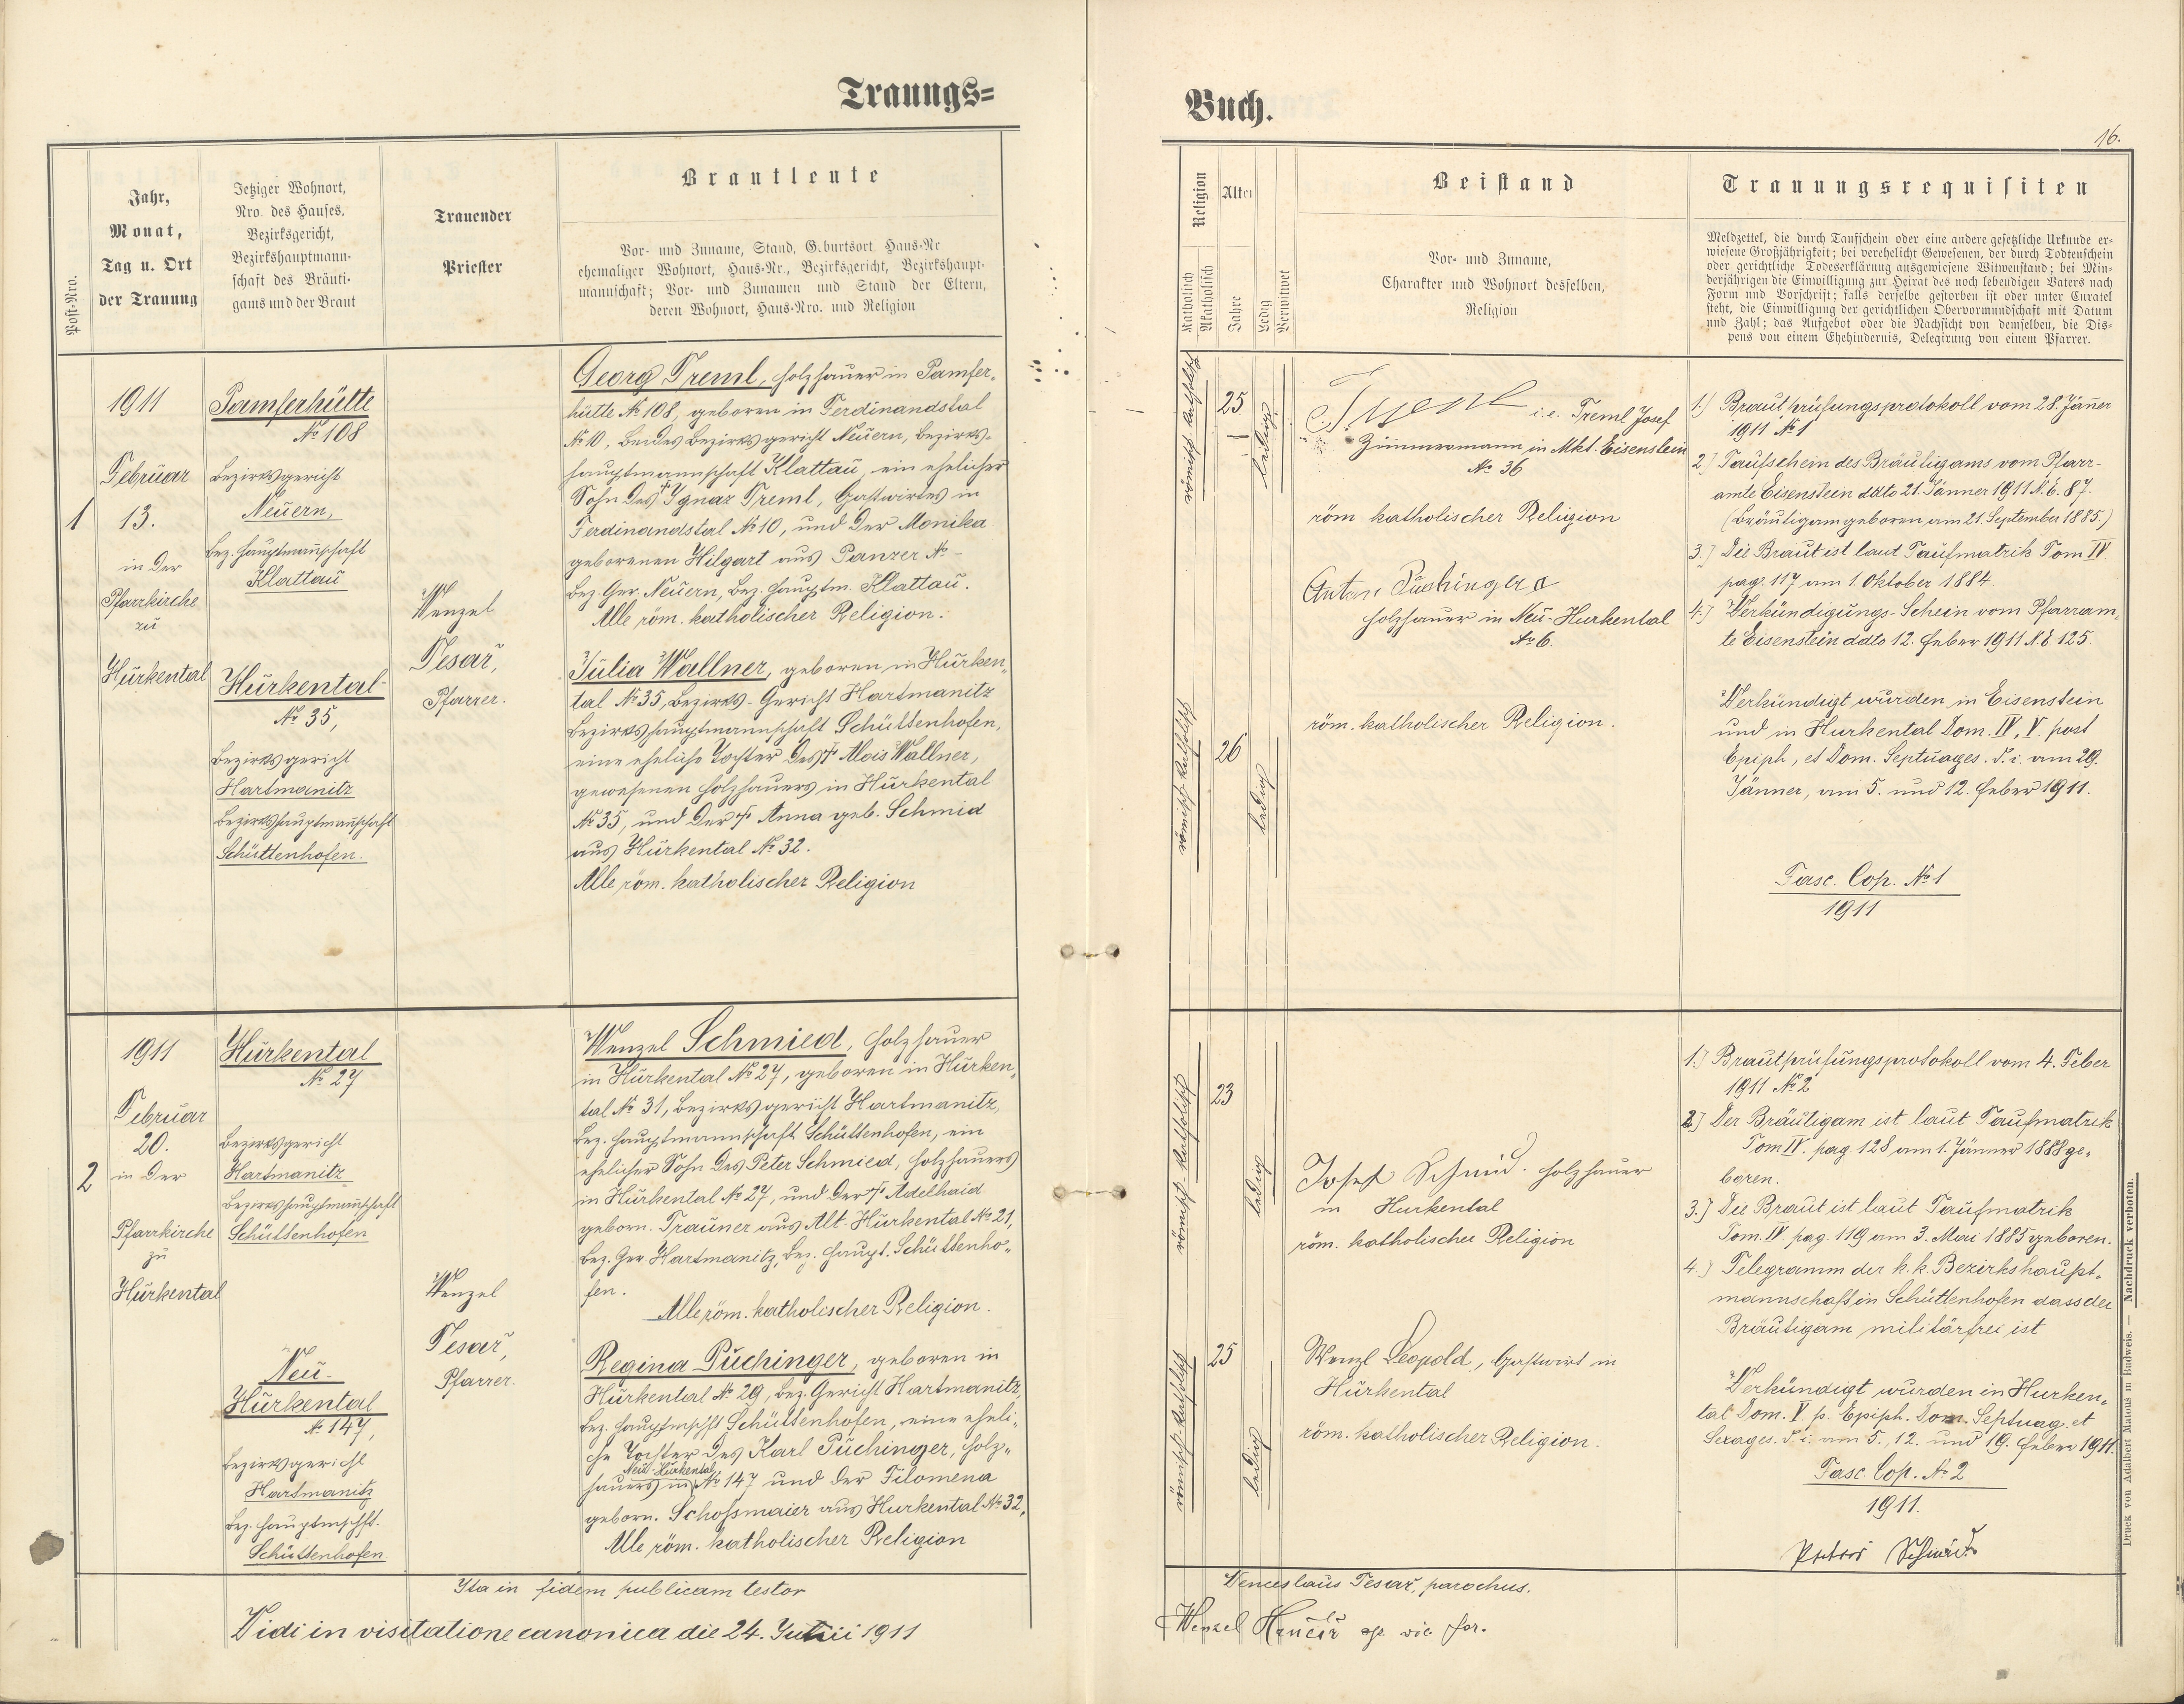 Trauungs=
Buch.
16.
Post-Nro.
Jahr,
Monat,
Tag u. Ort
der Trauung
Jetziger Wohnort,
Nro. des Hauses,
Bezirksgericht,
Bezirkshauptmann-
schaft des Bräuti-
gams und der Braut
Trauender
Priester
Brautleute
Vor- und Zuname, Stand, G.burtsort, Haus-Nr
ehemaliger Wohnort, Haus-Nr., Bezirksgericht, Bezirkshaupt-
mannschaft; Vor- und Zunamen und Stand der Eltern,
deren Wohnort, Haus-Nro. und Religion
Religion
Katholisch
Akatholisch
Alter
Jahre
Ledig
Verwitwet
Beistand
Vor- und Zuname,
Charakter und Wohnort desselben,
Religion
Trauungsrequisiten
Meldzettel, die durch Taufschein oder eine andere gesetzliche Urkunde er-
wiesene Großjährigkeit; bei verehelicht Gewesenen, der durch Todtenschein
oder gerichtliche Todeserklärung ausgewiesene Witwenstand; bei Min-
derjährigen die Einwilligung zur Heirat des noch lebendigen Vaters nach
Form und Vorschrift; falls derselbe gestorben ist oder unter Curatel
steht, die Einwilligung der gerichtlichen Obervormundschaft mit Datum
und Zahl; das Aufgebot oder die Nachsicht von demselben, die Dis-
pens von einem Ehehindernis, Delegirung von einem Pfarrer.
1
1911
Februar
13.
in der
Pfarrkirche
zu
Hurkental
Pamferhütte
No 108
Bezirksgericht
Neuern,
Bez. Hauptmannschaft
Klattau
Hurkental
No 35,
Bezirksgericht
Hartmanitz
Bezirkshauptmannschaft
Schüttenhofen.
Wenzel
Tesař,
Pfarrer.
Georg Treml, Holzhauer in Pamfer-
hütte No 108, geboren in Ferdinandstal
No 10, beides Bezirksgericht Neuern, Bezirks-
hauptmannschaft Klattau, ein ehelicher
Sohn des † Ignaz Treml, Gastwirtes in
Ferdinandstal No 10, und der Monika
geborenen Hilgart aus Panzer No –
Bez. Ger. Neuern, Bez. Hauptm. Klattau.
Alle röm. katholischer Religion.
Julia Wallner, geboren in Hurken-
tal No 35, Bezirks-Gericht Hartmanitz
Bezirkshauptmannschaft Schüttenhofen,
eine eheliche Tochter des † Alois Wallner,
gewesenen Holzhauers in Hurkental
No 35, und der † Anna geb. Schmid
aus Hurkental No 32.
Alle röm. katholischer Religion
römisch-katholisch
25
ledig
römisch-katholisch
26
ledig
i.e. Treml Josef
Zimmermann in Mkt. Eisenstein
No 36
röm. katholischer Religion
Anton Puchinger
Holzhauer in Neu-Hurkental
No 6.
röm. katholischer Religion.
1.) Brautprüfungsprotokoll vom 28. Jänner
1911 No 1
2.) Taufschein des Bräutigams vom Pfarr-
amte Eisenstein ddto 21. Jänner 1911 N.E. 87.
(Bräutigam geboren am 21. September 1885.)
3.) Die Braut ist laut Taufmatrik Tom IV
pag. 117 am 1. Oktober 1884
4.) Verkündigungs-Schein vom Pfarram-
te Eisenstein ddto 12. Feber 1911 N.E. 125.
Verkündigt wurden in Eisenstein
und in Hurkental Dom. IV, V. post
Epiph, et Dom. Septuages. d. i. am 29.
Jänner, am 5. und 12. Feber 1911.
Fasc. Cop. No 1
1911
2
1911
Februar
20.
in der
Pfarrkirche
zu
Hurkental
Hurkental
No 27
Bezirksgericht
Hartmanitz
Bezirkshauptmannschaft
Schüttenhofen
Neu-
Hurkental
No 147,
Bezirksgericht
Hartmanitz
Bez. Hauptmschft.
Schüttenhofen
Wenzel
Tesař,
Pfarrer.
Wenzel Schmied, Holzhauer
in Hurkental No 27, geboren in Hurken-
tal No 31, Bezirksgericht Hartmanitz,
Bez. Hauptmannschaft Schüttenhofen, ein
ehelicher Sohn des Peter Schmied, Holzhauers
in Hurkental No 27, und der † Adelhaid
geborn. Trauner aus Alt-Hurkental No 21,
Bez. Ger. Hartmanitz, Bez. Haupt. Schüttenho-
fen.
Alle röm. katholischer Religion.
Regina Puchinger, geboren in
Hurkental No 29, Bez. Gericht Hartmanitz,
Bez. Hauptmschft Schüttenhofen, eine eheli-
che Tochter des Karl Puchinger, Holz-
hauers in Neu-Hurkental No 147 und der Filomena
geborn. Schossmaier aus Hurkental No 32,
Alle röm. katholischer Religion
römisch-katholisch
23
ledig
römisch-katholisch
25
ledig
Josef Schmid. Holzhauer
in Hurkental
röm. katholischer Religion
Wenzl Leopold, Gastwirt in
Hurkental
röm. katholischer Religion.
1.) Brautprüfungsprotokoll vom 4. Feber
1911 No 2
2.) Der Bräutigam ist laut Taufmatrik
Tom IV. pag 128 am 1. Jänner 1888 ge-
boren.
3.) Die Braut ist laut Taufmatrik
Tom. IV pag. 119 am 3. Mai 1885 geboren.
4.) Telegramm der k. k. Bezirkshaupt-
mannschaft in Schüttenhofen dass der
Bräutigam militärfrei ist
Verkündigt wurden in Hurken-
tal Dom. V. p. Epiph. Dom. Septuag. et
Sexages. d. i. am 5., 12. und 19. Feber 1911.
Fasc. Cop. No 2
1911.
Ita in fidem publicam testor
Wenceslaus Tesař, parochus.
Vidi in visitatione canonica die 24. Junii 1911
Druck von Adalbert Matous in Budweis. — Nachdruck verboten.